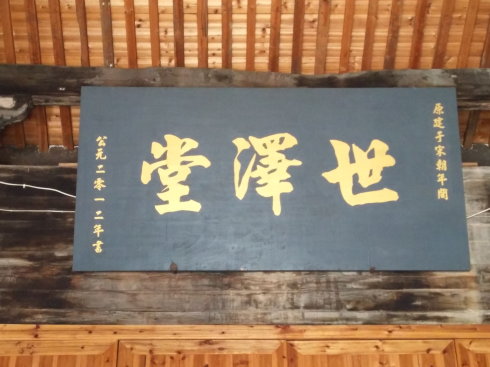 原建于宋朝年間
世澤堂
公元二零一二年書